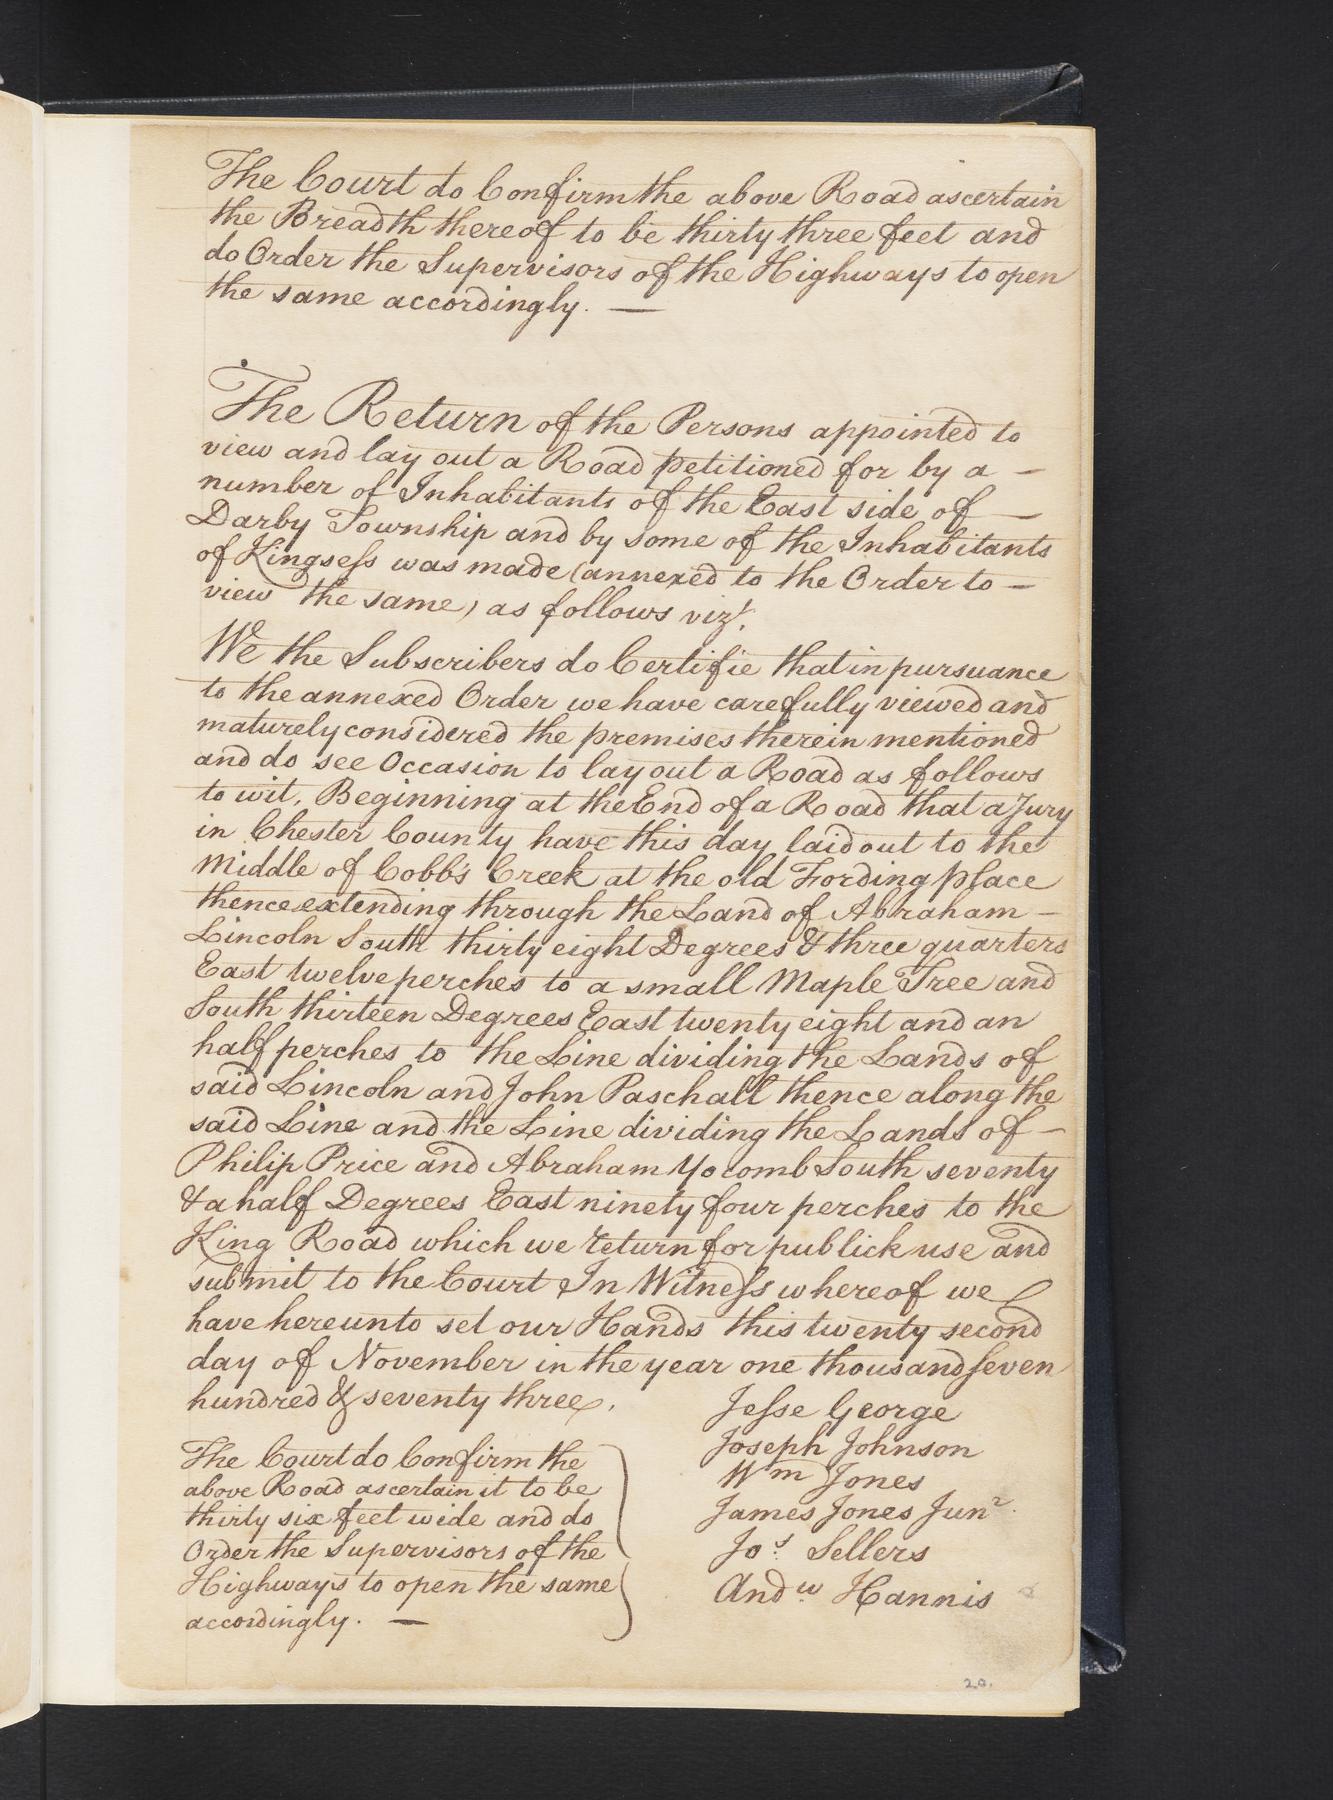 The Court do Confirm the above Road ascertain
the Breadth thereof to be thirty three feet and
do Order the Supervisors of the Highways to open
the same accordingly. —
The Return of the Persons appointed to
view and lay out a Road petitioned for by a —
number of Inhabitants of the East side of —
Darby Township and by some of the Inhabitants
of Kingsess was made (annexed to the Order to —
view the same) as follows vizt.
We the Subscribers do Certifie that in pursuance
to the annexed Order we have carefully viewed and
maturely considered the premises therein mentioned
and do see Occasion to lay out a Road as follows
to wit, Beginning at the End of a Road that a Jury
in Chester County have this day laid out to the
Middle of Cobb's Creek at the old Fording place
thence extending through the Land of Abraham —
Lincoln South thirty eight Degrees & three quarters
East twelve perches to a small Maple Tree and
South thirteen Degrees East twenty eight and an
half perches to the Line dividing the Lands of
said Lincoln and John Paschall thence along the
said Line and the Line dividing the Lands of —
Philip Price and Abraham Yocomb South seventy
& a half Degrees East ninety four perches to the
King Road which we return for publick use and
submit to the Court In Witness whereof we
have hereunto set our Hands this twenty second
day of November in the year one thousand seven
hundred & seventy three.
Jesse George
Joseph Johnson
Wm Jones
James Jones Junr.
Jos. Sellers
Andw. Hannis
The Court do Confirm the
above Road ascertain it to be
thirty six feet wide and do
Order the Supervisors of the
Highways to open the same
accordingly. —
20.